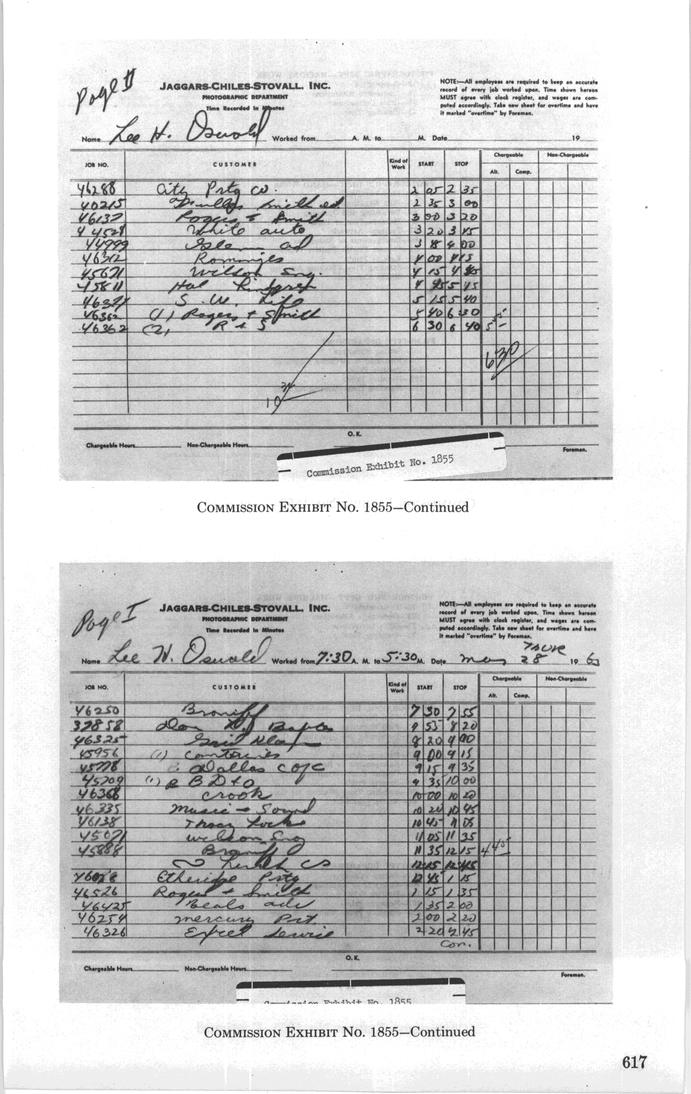 Page II
JAGGARS-CHILES-STOVALL, INC.
PHOTOGRAPHIC DEPARTMENT
Time Recorded in Minutes
NOTE:—All employees are required to keep an accurate
record of every job worked upon. Time shown hereon
MUST agree with clock register, and wages are com-
puted accordingly. Take new sheet for overtime and have
it marked "overtime" by Foreman.
Name Lee H. Oswald Worked from A. M. to M. Date 19
JOB NO. CUSTOMER Kind of Work START STOP Chargeable Non-Chargeable
Alt. Comp.
46288 City Prtg Co. 2 05 2 35
40215 Smith ad 2 35 3 00
46137 Rogers & Smith 3 00 3 20
44528 White auto 3 20 3 45
44999 ad 4 00
46312 4 00 4 15
45671 Wilson Eng. 4 15
45811 Hal 5 15
S. W. Life 5 15 5 40
46362 (1) Rogers & Smith 5 40 6 30
46362 (2) R & S 6 30 6 40
630
O. K.
Chargeable Hours Non-Chargeable Hours Foreman.
Commission Exhibit No. 1855
COMMISSION EXHIBIT No. 1855—Continued
Page I
JAGGARS-CHILES-STOVALL, INC.
PHOTOGRAPHIC DEPARTMENT
Time Recorded in Minutes
NOTE:—All employees are required to keep an accurate
record of every job worked upon. Time shown hereon
MUST agree with clock register, and wages are com-
puted accordingly. Take new sheet for overtime and have
it marked "overtime" by Foreman.
Name Lee H. Oswald Worked from 7:30 A. M. to 5:30 M. Date 28 196
JOB NO. CUSTOMER Kind of Work START STOP Chargeable Non-Chargeable
Alt. Comp.
46250 Braniff 7 30 7 55
37858 Don 8 20
46325 8 20 9 00
45956 (1) 9 00 9 15
45778 Dallas COfC 9 15 9 35
45709 (1) 9 35 10 00
46368 Crook 10 00 10 20
46335 Music & Sound 10 20 10 45
46138 10 45 11 05
45071 Wilson Eng 11 05 11 35
45888 Braniff 11 35 12 15
12 15 12 45
Etheridge Prtg 12 45 1 15
46526 Rogers & Smith 1 15 1 35
46425 Beals adv 1 35 2 00
46254 Mercury Prt 2 00 2 20
46326 2 20 2 45
Con.
O. K.
Chargeable Hours Non-Chargeable Hours Foreman.
Commission Exhibit No. 1855
COMMISSION EXHIBIT No. 1855—Continued
617